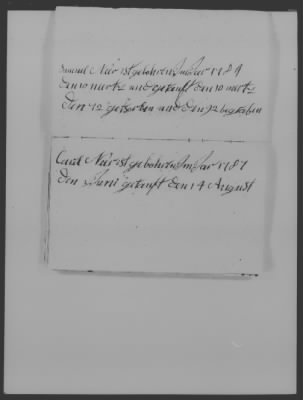 Samuel Neir ist gebohren Im Jar 1784
den 10 mertz und getauft den 10 mertz
den 12 gestorben und den 12 begraben
Carl Neir ist gebohren Im Jar 1787
den Juni getauft den 14 August